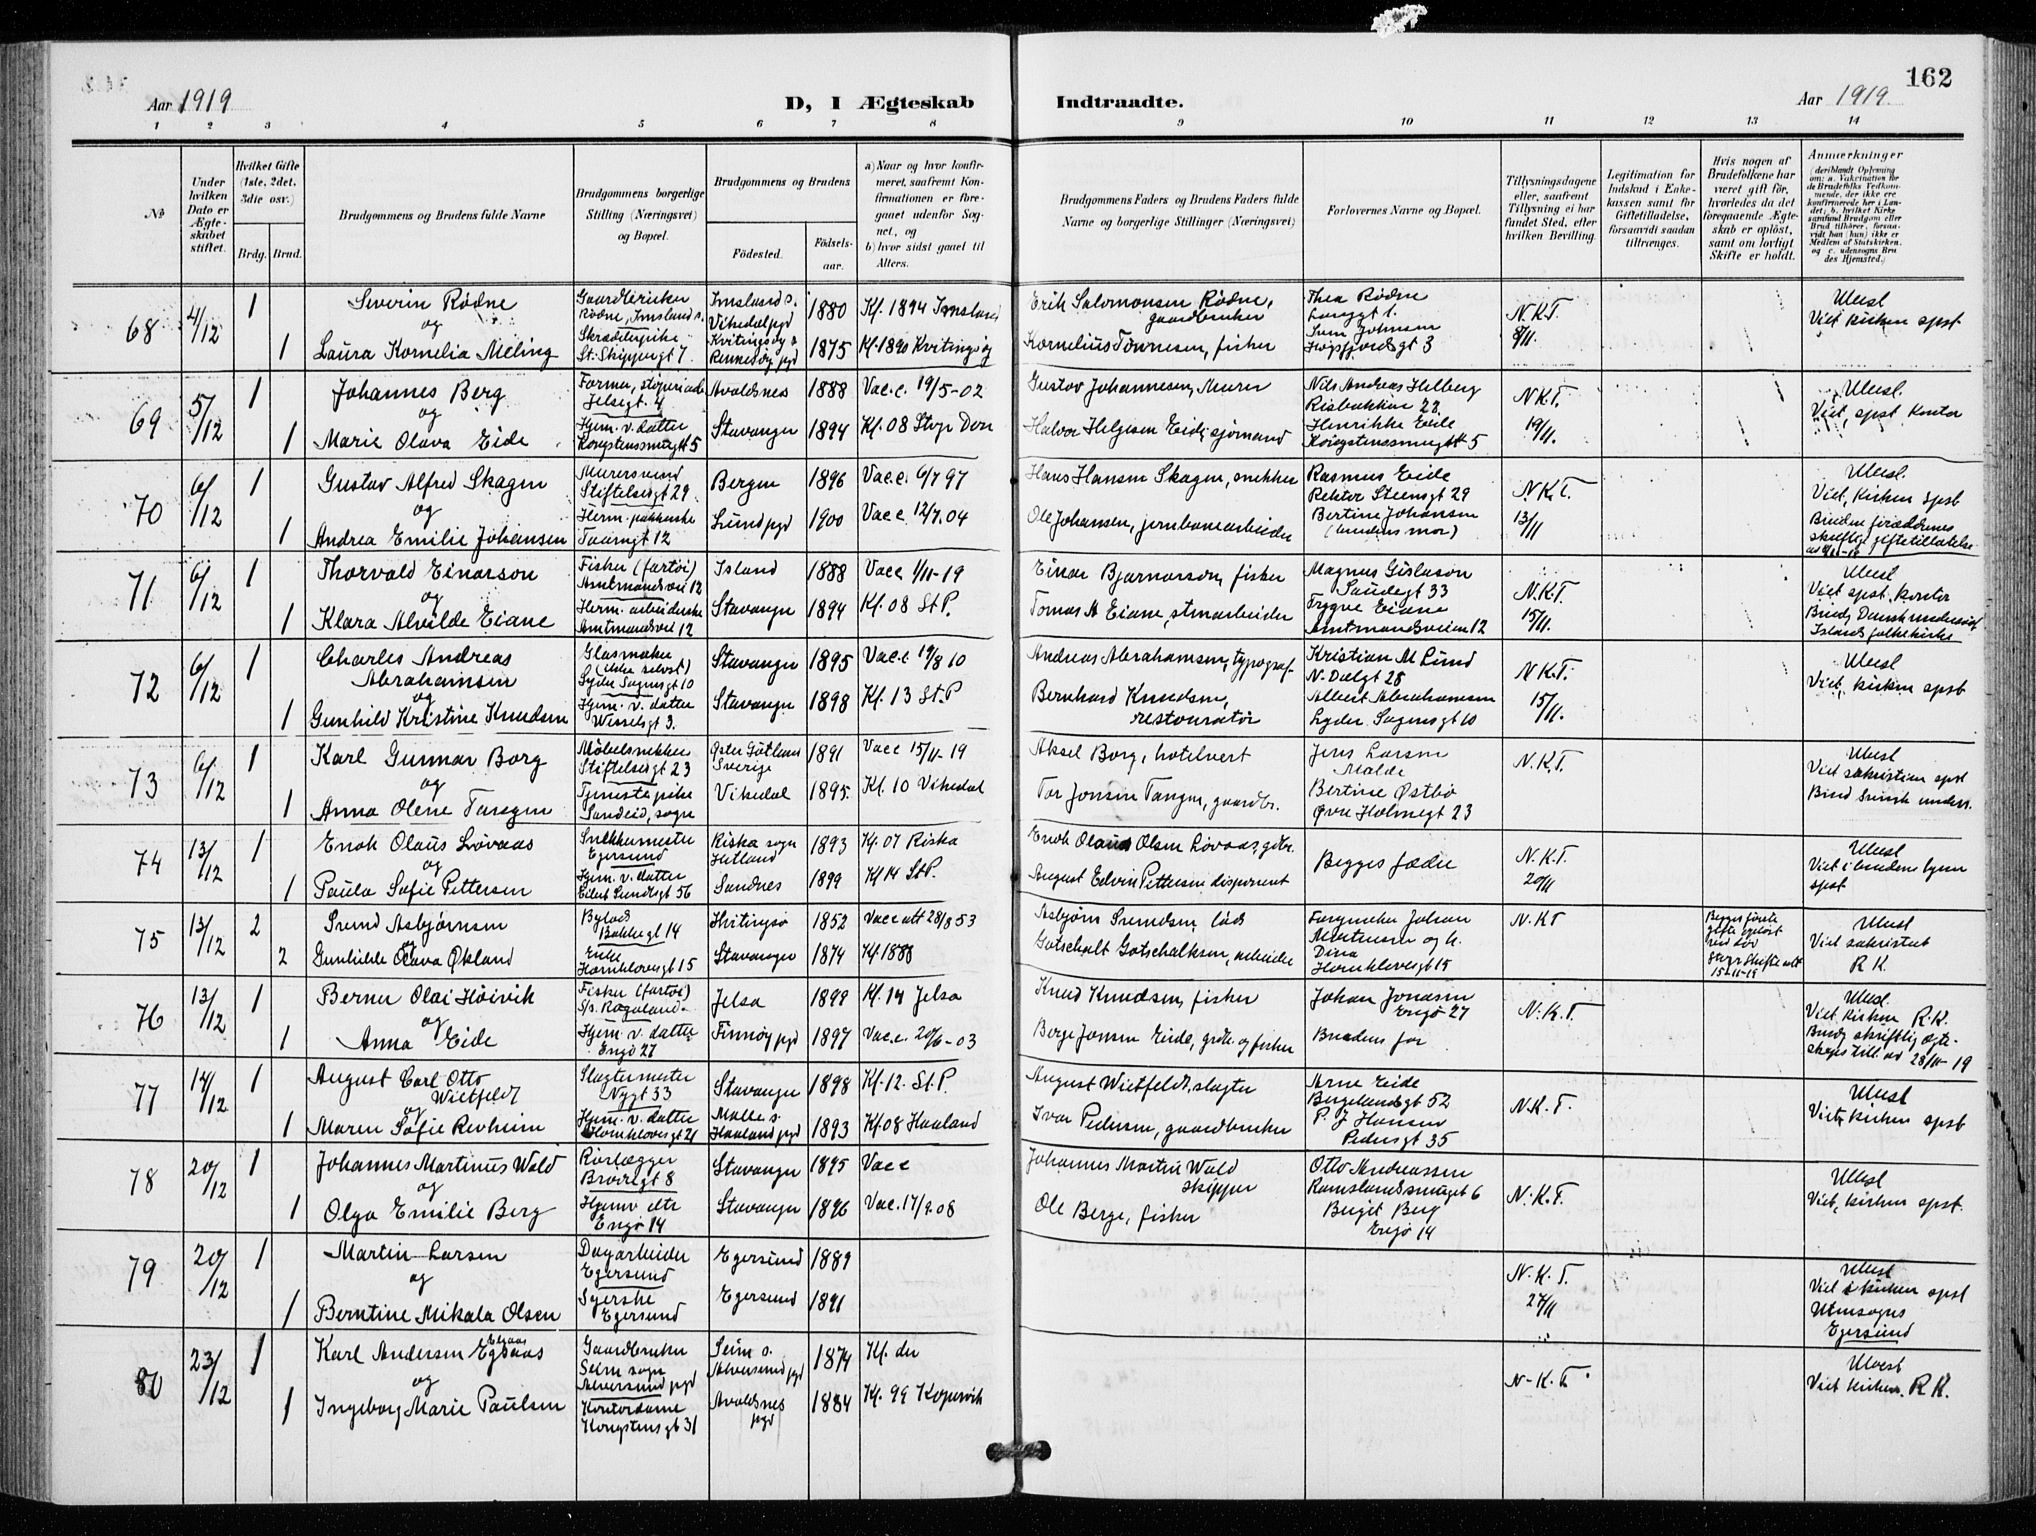 162
Aar 1919
D, I Ægteskab Indtraadte.
Aar 1919.
1 2 3 4 5 6 7 8 9 10 11 12 13 14
No
Under hvilken Dato er Ægteskabet stiftet.
Hvilket Gifte (1ste, 2det, 3die osv.)
Brdg. Brud.
Brudgommens og Brudens fulde Navne
Brudgommens borgerlige Stilling (Næringsvei) og Bopæl.
Brudgommens og Brudens
Fødested.
Fødselsaar.
a) Naar og hvor konfirmeret, saafremt Konfirmationen er foregaaet udenfor Sognet, og
b) hvor sidst gaaet til Alters.
Brudgommens Faders og Brudens Faders fulde Navne og borgerlige Stillinger (Næringsvei)
Forlovernes Navne og Bopæl.
Tillysningsdagene eller, saafremt Tillysning ei har fundet Sted, efter hvilken Bevilling.
Legitimation for Indskud i Enkekassen samt for Giftetilladelse, forsaavidt saadan tiltrænges.
Hvis nogen af Brudefolkene har været gift før, hvorledes da det foregaaende Ægteskab er opløst, samt om lovligt Skifte er holdt.
Anmerkninger (deriblandt Oplysning om: a. Vakcination for de Brudefolks Vedkommende, der ikke ere konfirmerede her i Landet; b. hvilket Kirkesamfund Brudgom eller Brud tilhører, forsaavidt han (hun) ikke er Medlem af Statskirken, og c. udensogns Brudes Hjemsted.)
68 4/12 1 Severin Rödne
og
1 Laura Kornelia Meling
Gaardbruker Rödne, Imsland s.
St. Skippergt 7
Imsland s. Vikedal pgd 1880 Kf. 1894 Imsland
Kvitingsøy s Rennesøy pgd 1875 Kf. 1890 Kvitingsøy
Erik Salomonsen Rödne, gaardbruker
Kornelius Tönnesen, fisker
Thea Rödne
Sven Johnsen
Høgsfjordsgt 3
N.K.T. 8/11.
Ubesl
Viet kirken spst.
69 5/12 1 Johannes Berg
og
1 Marie Olava Eide
Jelsegt. 4
Hjem. v. datter
Kongstensmugtt 5
Avaldsnes 1888 Vac.c. 19/5-02
Stavanger 1894 Kf. 08 Stvgr Dom
Gustav Johannesen, Murer
Halvor Helgesen Eide, sjömand
Nils Andreas Helberg
Risbakken 22,
Henrikke Eide
Kongstensmugtt 5
N.K.T. 19/11.
Ubesl.
Viet, spst kontor
70 6/12 1 Gustav Alfred Skagen
og
1 Andrea Emilie Johansen
Murersvend
Stiftelsesgt 29
Herm. pakkerske
Taarngt 12
Bergen 1896 Vac.c. 6/7 97
Lund pgd 1900 Vacc. 12/7.04
Hans Hansen Skagen, snekker
Ole Johansen, jernbanearbeider
Rasmus Eide
Rektor Steensgt 29
Bertine Johansen
(brudens mor)
N.K.T. 13/11
Ubesl.
Viet, Kirken spst
Bruden forældrenes skriftlig giftetillatelse
71 6/12 1 Thorvald Einarson
og
1 Klara Alvilde Eiane
Fisker (fartöi)
Amtmandsvei 12
Herm. arbeiderske
Amtmandsvei 12
Island 1888 Vacc 1/11-19
Stavanger 1894 Kf. 08 St P.
Einar Bjarnarson, fisker
Tomas A Eiane, stenarbeider
Magnus Gislason
Sandegt 33
Trygve Eiane
Amtmandsveien 12
N.K.T. 15/11.
Ubesl
Viet spst. kontor
Brudg Dansk undersaat
Islands folkekirke
72 6/12 1 Charles Andreas Abrahamsen
og
1 Gunhild Kristine Knudsen
Glasmaker
(ikke selvst)
Lyder Sagensgt 10
Hjem. v. datter
Wesselsgt 3.
Stavanger 1895 Vac.c 19/8 10
Stavanger 1898 Kf. 13 St.P
Andreas Abrahamsen, typograf
Bernhard Knudsen, restauratör
Kristian M Lund
N. Dalgt 28
Albert Abrahamsen
Lyder Sagensgt 10
N K.T. 15/11.
Ubesl
Viet, kirken spst
73 6/12 1 Karl Gunnar Borg
og
1 Anna Olene Tangen
Möbelsnekker
Stiftelsesgt 23
Tjenestepike
Sandeid, sogn
Sverige 1891 Vacc 15/11-19
Vikedal 1895. Kf. 10 Vikedal
Aksel Borg, hotelvert
Tor Jonsen Tangen, gaardbr.
Jens Larsen Malde
Bertine Østbö
Øvre Holmegt 23
N.K.T.
Ubesl
Viet sakristien spst
Brud Svensk unders.
74 13/12 1 Enok Olaus Lövaas
og
1 Paula Sofie Pettersen
Snekkermester
Egersund
Hjem. v. datter
Eilert Sundtsgt 56
Riska sogn Hetland 1893 Kf. 07 Riska
Sandnes 1899 Kf 14 St P.
Enok Olaus Olsen Lövaas, gbr.
August Edvin Pettersen disponent
Begges fædre
N.K.T. 20/11
Ubesl
Viet i brudens hjem spst
75 13/12 2 Svend Asbjørnsen
og
2 Gunhilde Olava Økland
Bylods
Bakkegt 14
Enke
Hornklovesgt 15
Hvitingsö 1852 Vacc att 28/8 53
Stavanger 1874 Kf. 1888
Asbjørn Svendsen, lods
Gotschalk Gotschalksen, arbeider
Johan Mortensen og h.
Dina
Hornklovesgt 15
N.K.T
Begges første gifte opløst ved død
15-11-19
Ubesl
Viet sakristiet
R K.
76 13/12 1 Berner Olai Höivik
og
1 Anna Eide
Fisker (fartöi)
S/s. Rogaland.
Hjem. v. datter
Engö 27
Jelsa 1899 Kf. 14 Jelsa
Finnöy pgd 1897 Vac.c. 20/6-03
Knud Knudsen, fisker
Berge Jonsen Eide, grdbr. og fisker
Johan Jonasen
Engö 27
Brudens far
N.K.T.
Ubesl.
Viet Kirken R.K.
Brudg skriftlig egteskaps till. av 28/11-19
77 14/12 1 August Carl Otto Wietfeldt
og
1 Maren Sofie Revheim
Slagtermester
Nygt 33
Hjem. v. datter
Hornklovesgt 21
Stavanger 1898 Kf. 12. St. P.
Malle s. Haaland pgd 1893 Kf. 08 Haaland
August Wietfeldt, slagter
Ivar Pedersen, gaardbruker
Arne Eide
Bergelandsgt 52
P. J Hansen
Pedersgt 35
N.K.T.
Ubesl
Viet kirken spst
78 20/12 1 Johannes Martinus Wold
og
1 Olga Emilie Berg
Rörlægger
Brovegt 8
Hjemv dtr
Engö 14
Stavanger 1895 Vac c
Stavanger 1896 Vac. 17/9.08
Johannes Martin Wold skipper
Ole Berge, fisker
Otto Andreassen
Ramslandsmuget 6
Birgit Berg
Engö 14
N.K.T.
Ubesl
Viet, kirken spst.
79 20/12 1 Martin Larsen
og
1 Berntine Mikala Olsen
Dagarbeider
Egersund
Syerske
Egersund
Egersund 1889
Egersund 1891
N.K.T. 27/11
Ubesl
Viet i kirken spst
Utensogns
Egersund
80 23/12 1 Karl Andersen Egaas
og
1 Ingeborg Marie Paulsen
Gaardbruker
Seim sogn
Alversund pgd
Kontordame
Kongstensgt 31
Seim s. Alversund pgd 1874 Kf. der
Avaldsnes pgd 1884 Kf. 99 Kopervik
N.K.T.
Ubesl
Viet kirken. R K.